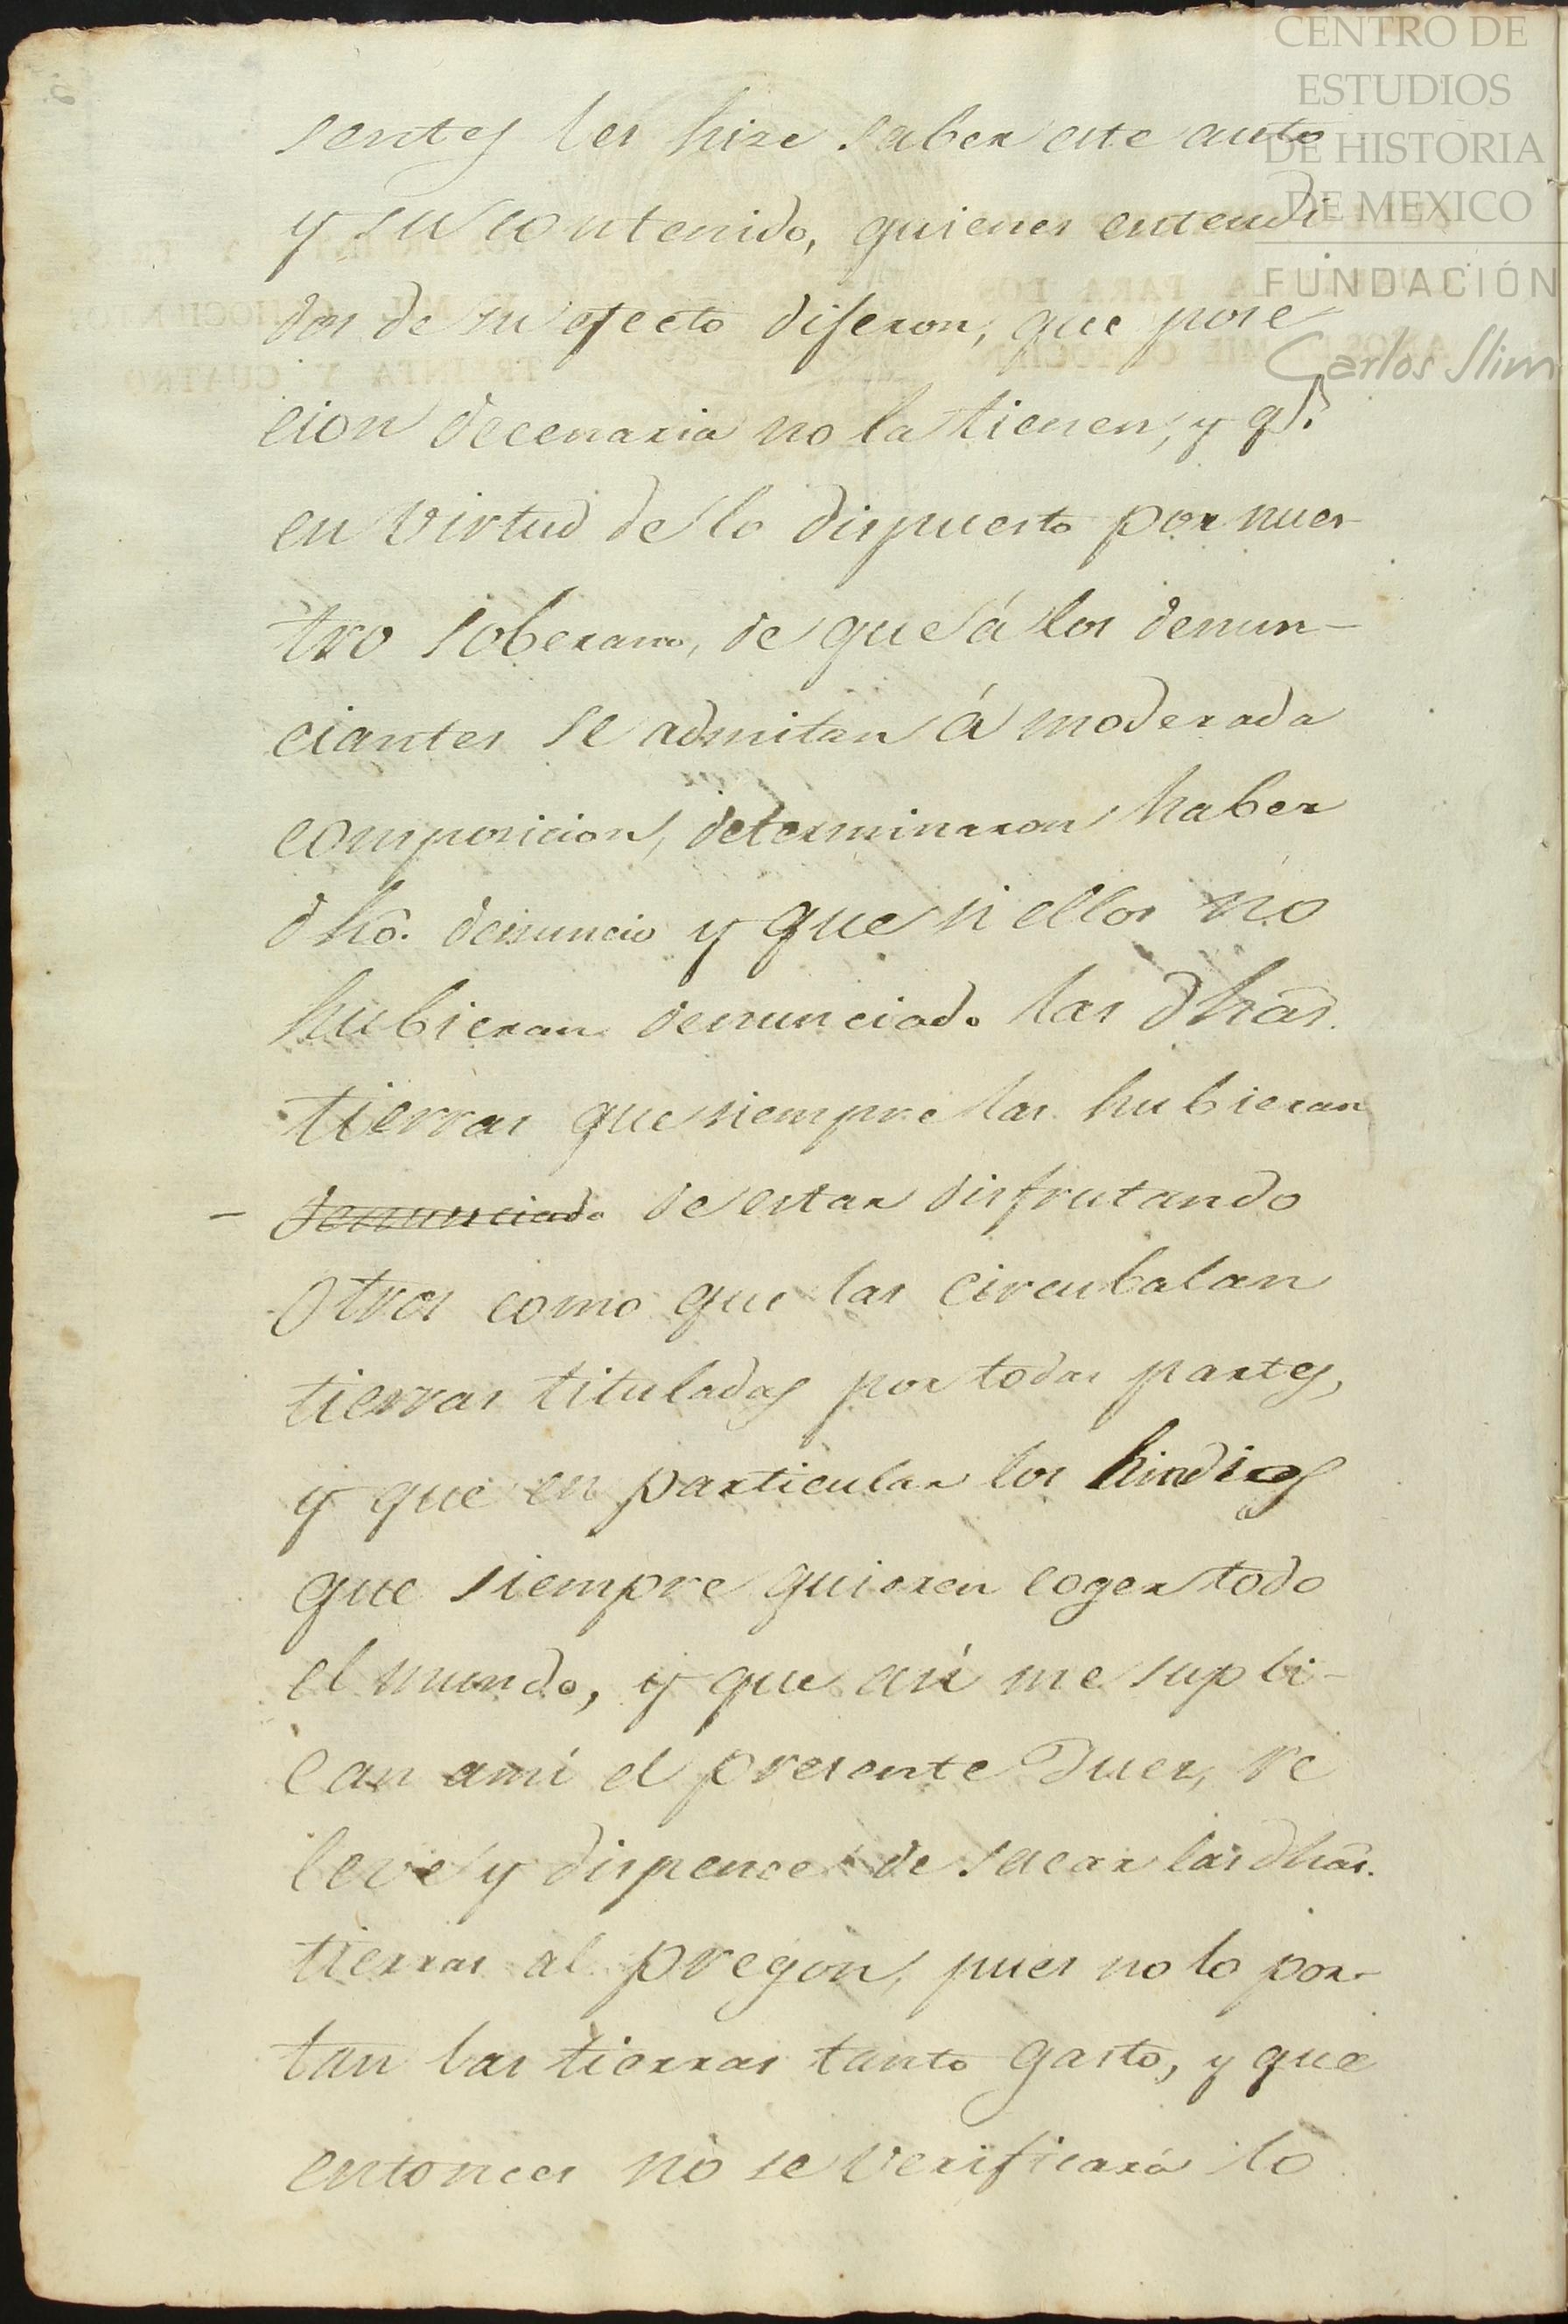 CENTRO DE
ESTUDIOS
DE HISTORIA
DE MEXICO
FUNDACIÓN
Carlos Slim
sentes les hize saber este auto
y su contenido, quienes entendi
dos de su efecto diferon, que pose
cion decenaria no la tienen, y q.e
en virtud de lo dispuesto por nues-
tro soberano, de que á los denun-
ciantes se admitan á moderada
composicion, determinaron haber
dho. denuncio y que si ellos no
hubieran denunciado las dhas.
tierras que siempre las hubieran
- denunciado de estar disfrutando
otros como que las circubalan
tierras tituladas por todas partes,
y que en particular los hindios
que siempre quieren coger todo
el mundo, y que asi me supli-
can ami el presente Juez, re
leve y dispence de sacar las dhas.
tierras al pregon, pues no lo por-
tan las tierras tanto gasto, y que
entonces no se verificará lo